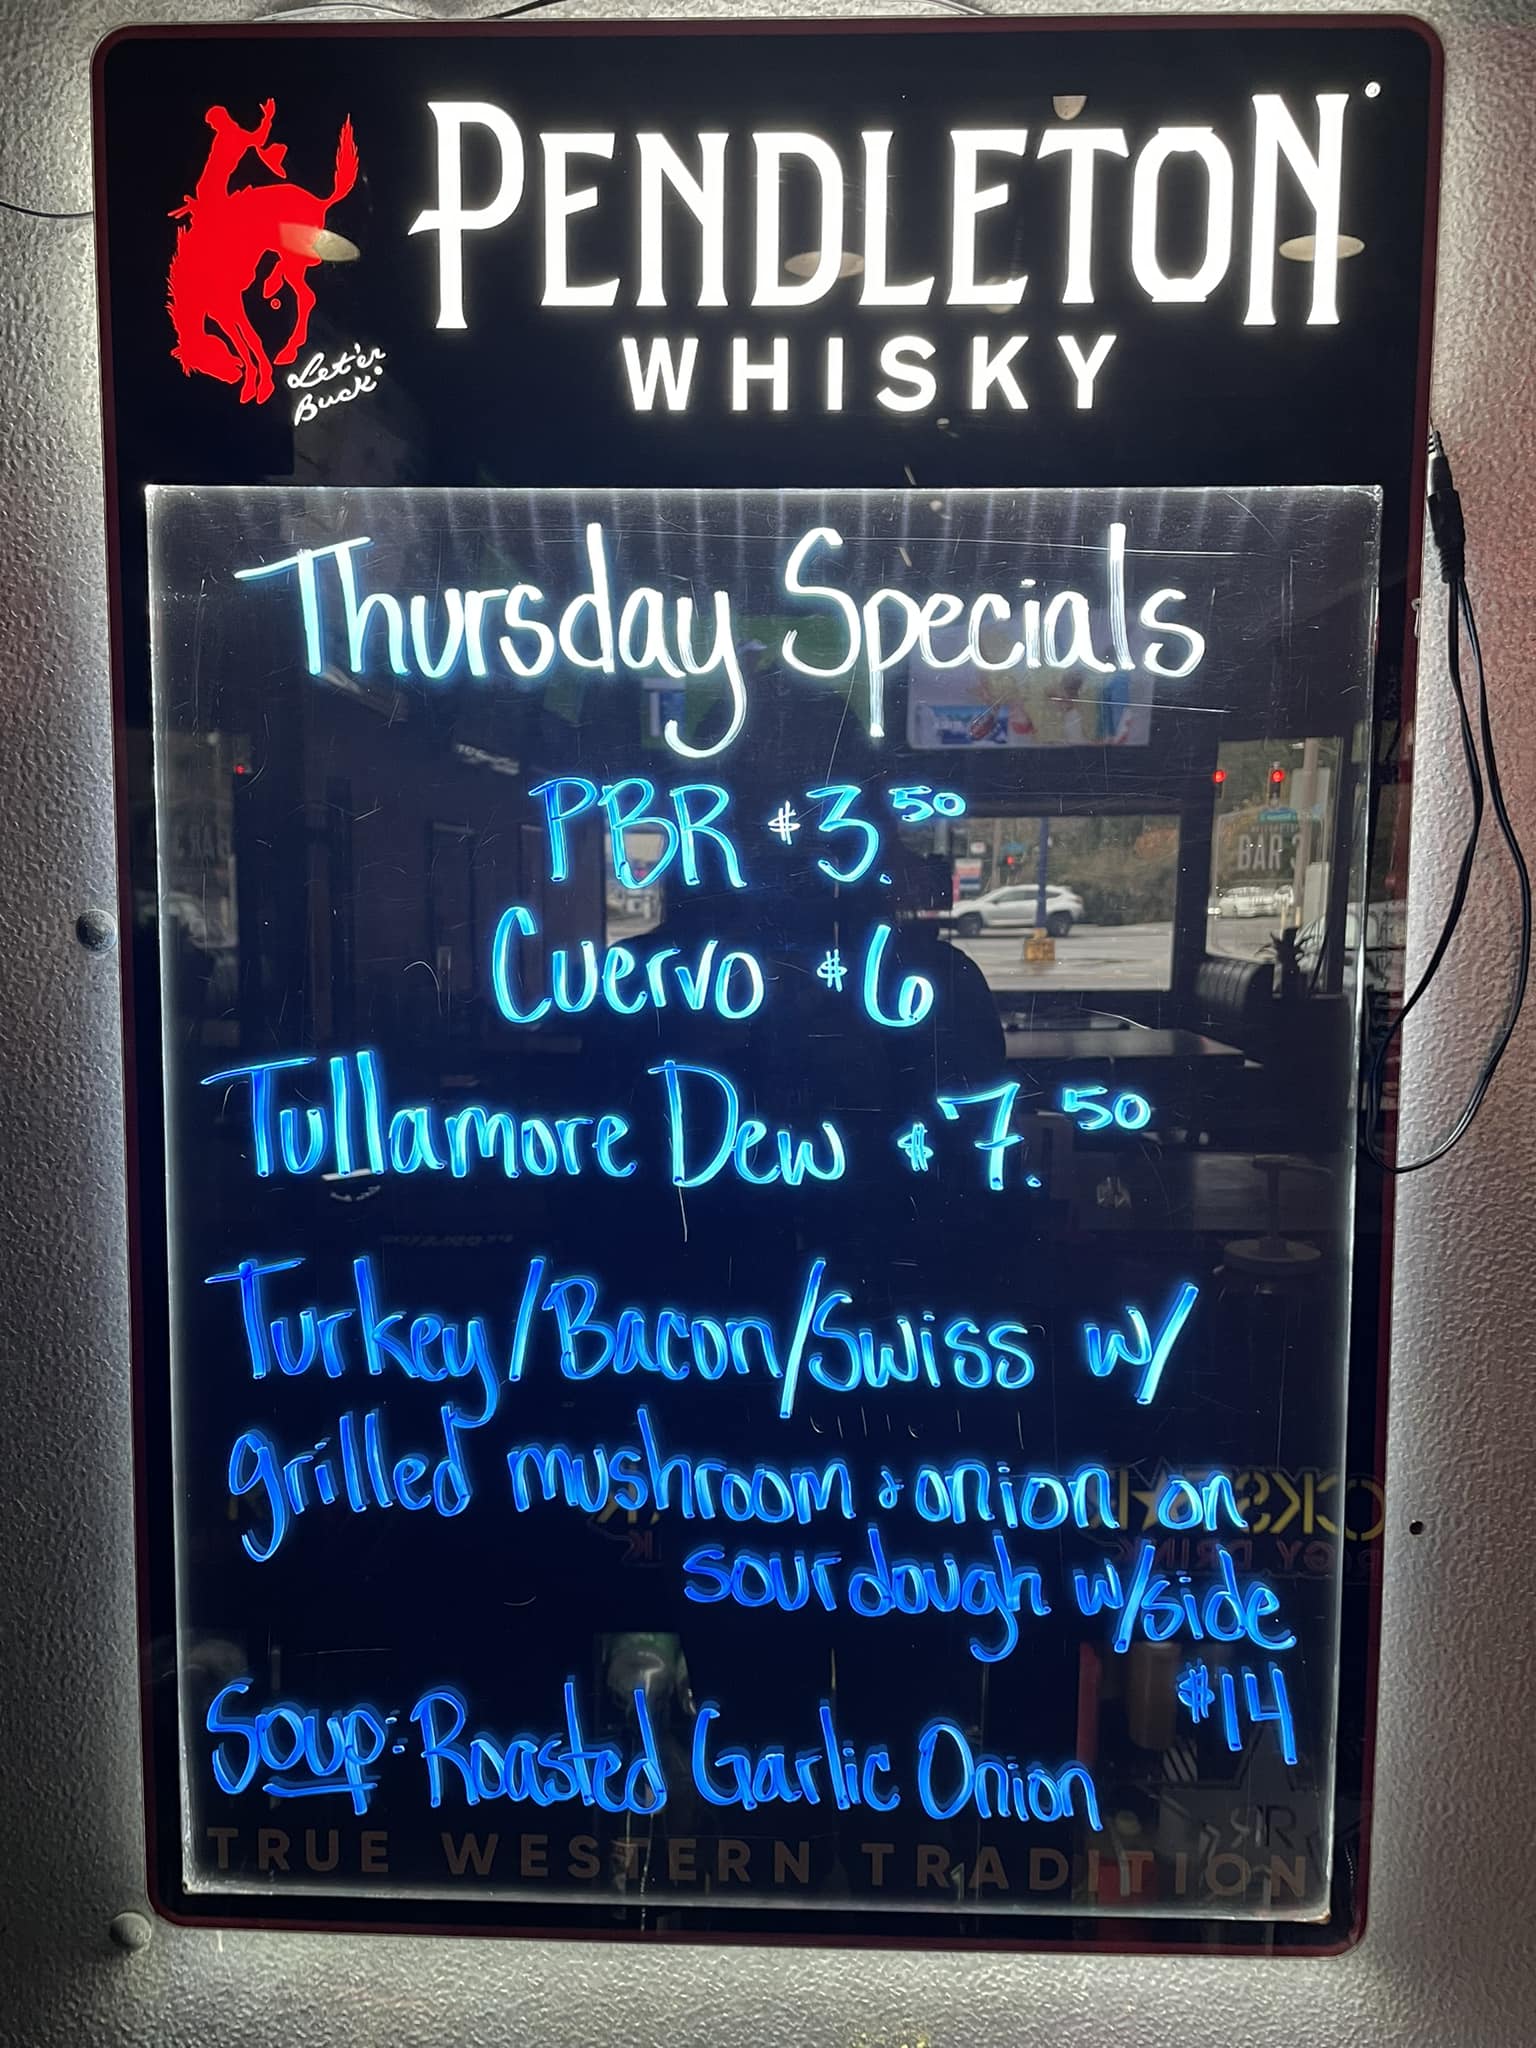 PENDLETON®
WHISKY
Let'er
Buck®
Thursday Specials
PBR $3.50
Cuervo $6
Tullamore Dew $7.50
Turkey/Bacon/Swiss w/
grilled mushroom & onion on
sourdough w/side
$14
Soup: Roasted Garlic Onion
TRUE WESTERN TRADITION
BAR